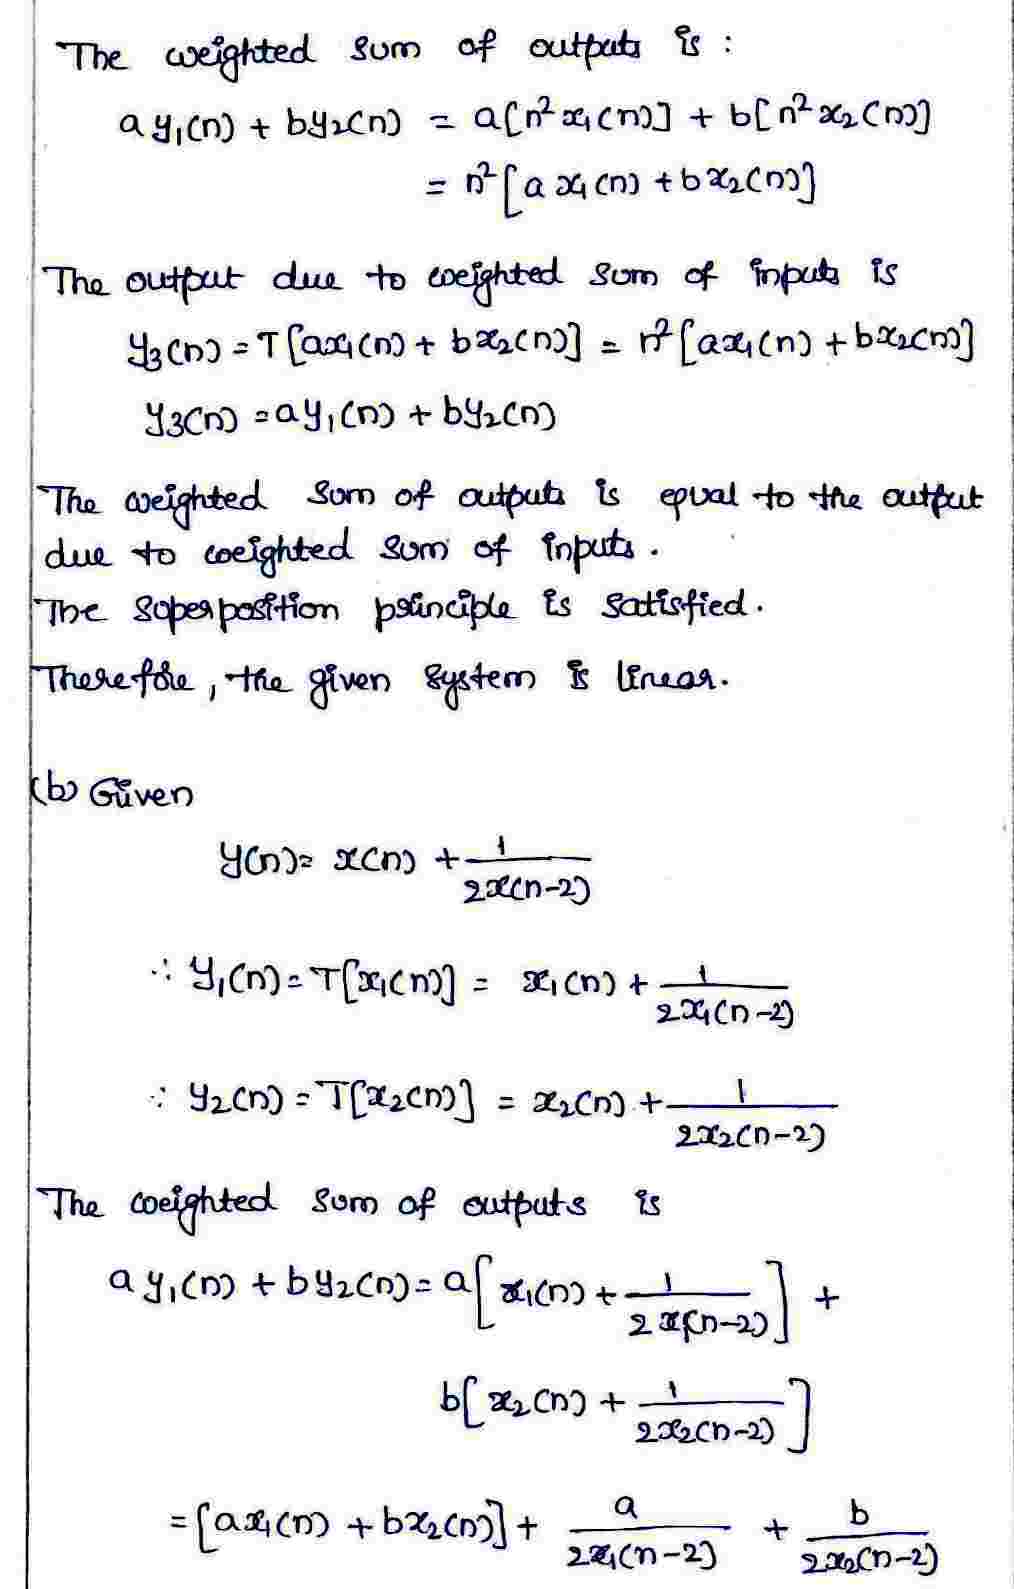 The weighted sum of outputs is :
a y₁(n) + by₂(n) = a[n² x₁(n)] + b[n² x₂(n)]
= n² [a x₁(n) + b x₂(n)]
The output due to weighted sum of inputs is
y₃(n) = T[ax₁(n) + bx₂(n)] = n² [ax₁(n) + bx₂(n)]
y₃(n) = ay₁(n) + by₂(n)
The weighted sum of outputs is equal to the output
due to weighted sum of inputs.
The superposition principle is satisfied.
Therefore, the given system is linear.
(b) Given
y(n) = x(n) + 1/2x(n-2)
∴ y₁(n) = T[x₁(n)] = x₁(n) + 1/2x₁(n-2)
∴ y₂(n) = T[x₂(n)] = x₂(n) + 1/2x₂(n-2)
The weighted sum of outputs is
a y₁(n) + b y₂(n) = a[x₁(n) + 1/2x₁(n-2)] +
b[x₂(n) + 1/2x₂(n-2)]
= [ax₁(n) + bx₂(n)] + a/2x₁(n-2) + b/2x₂(n-2)